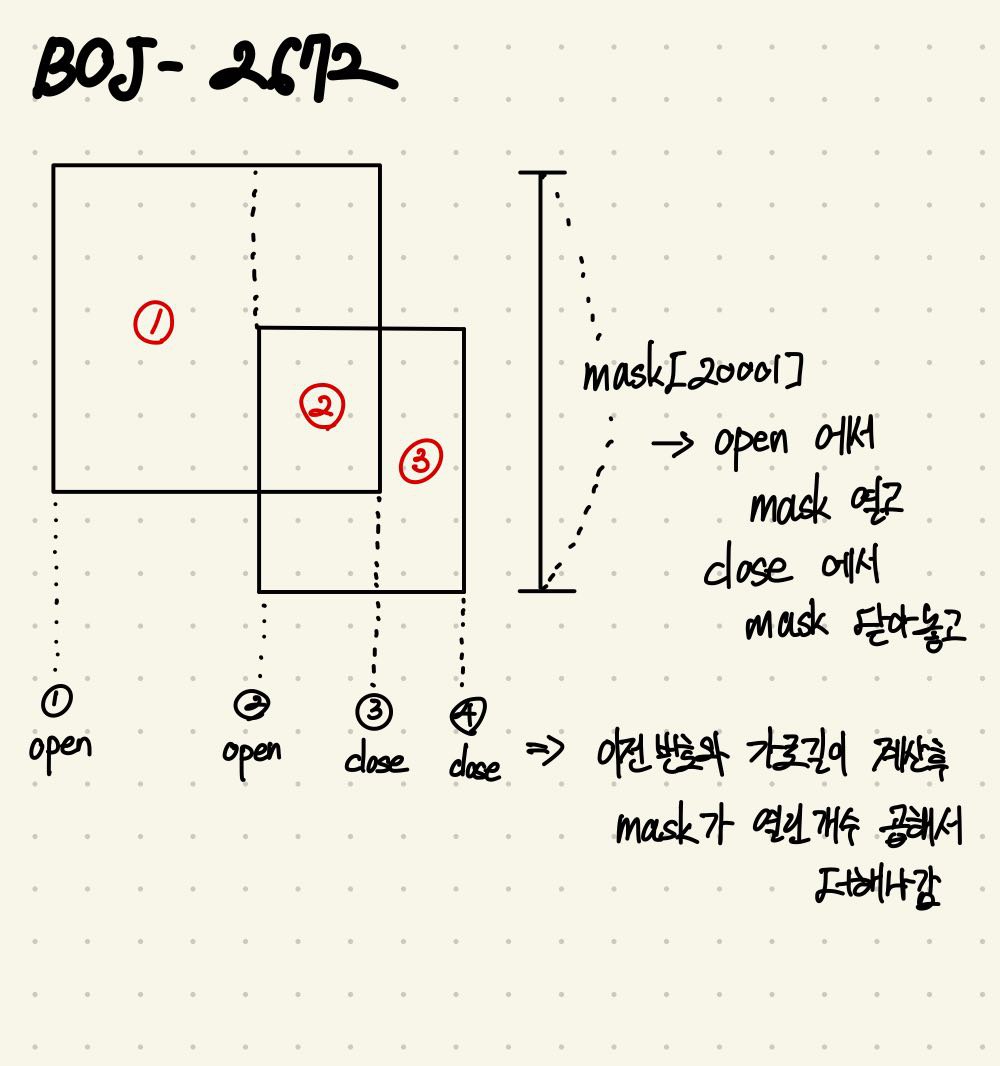 BOJ- 2672
①
②
③
mask[20001]
→ open 에서
mask 열고
close 에서
mask 닫아놓고
① ② ③ ④
open open close close
⇒ 이전 번호와 가로길이 계산후
mask가 열린 개수 곱해서
더해나감